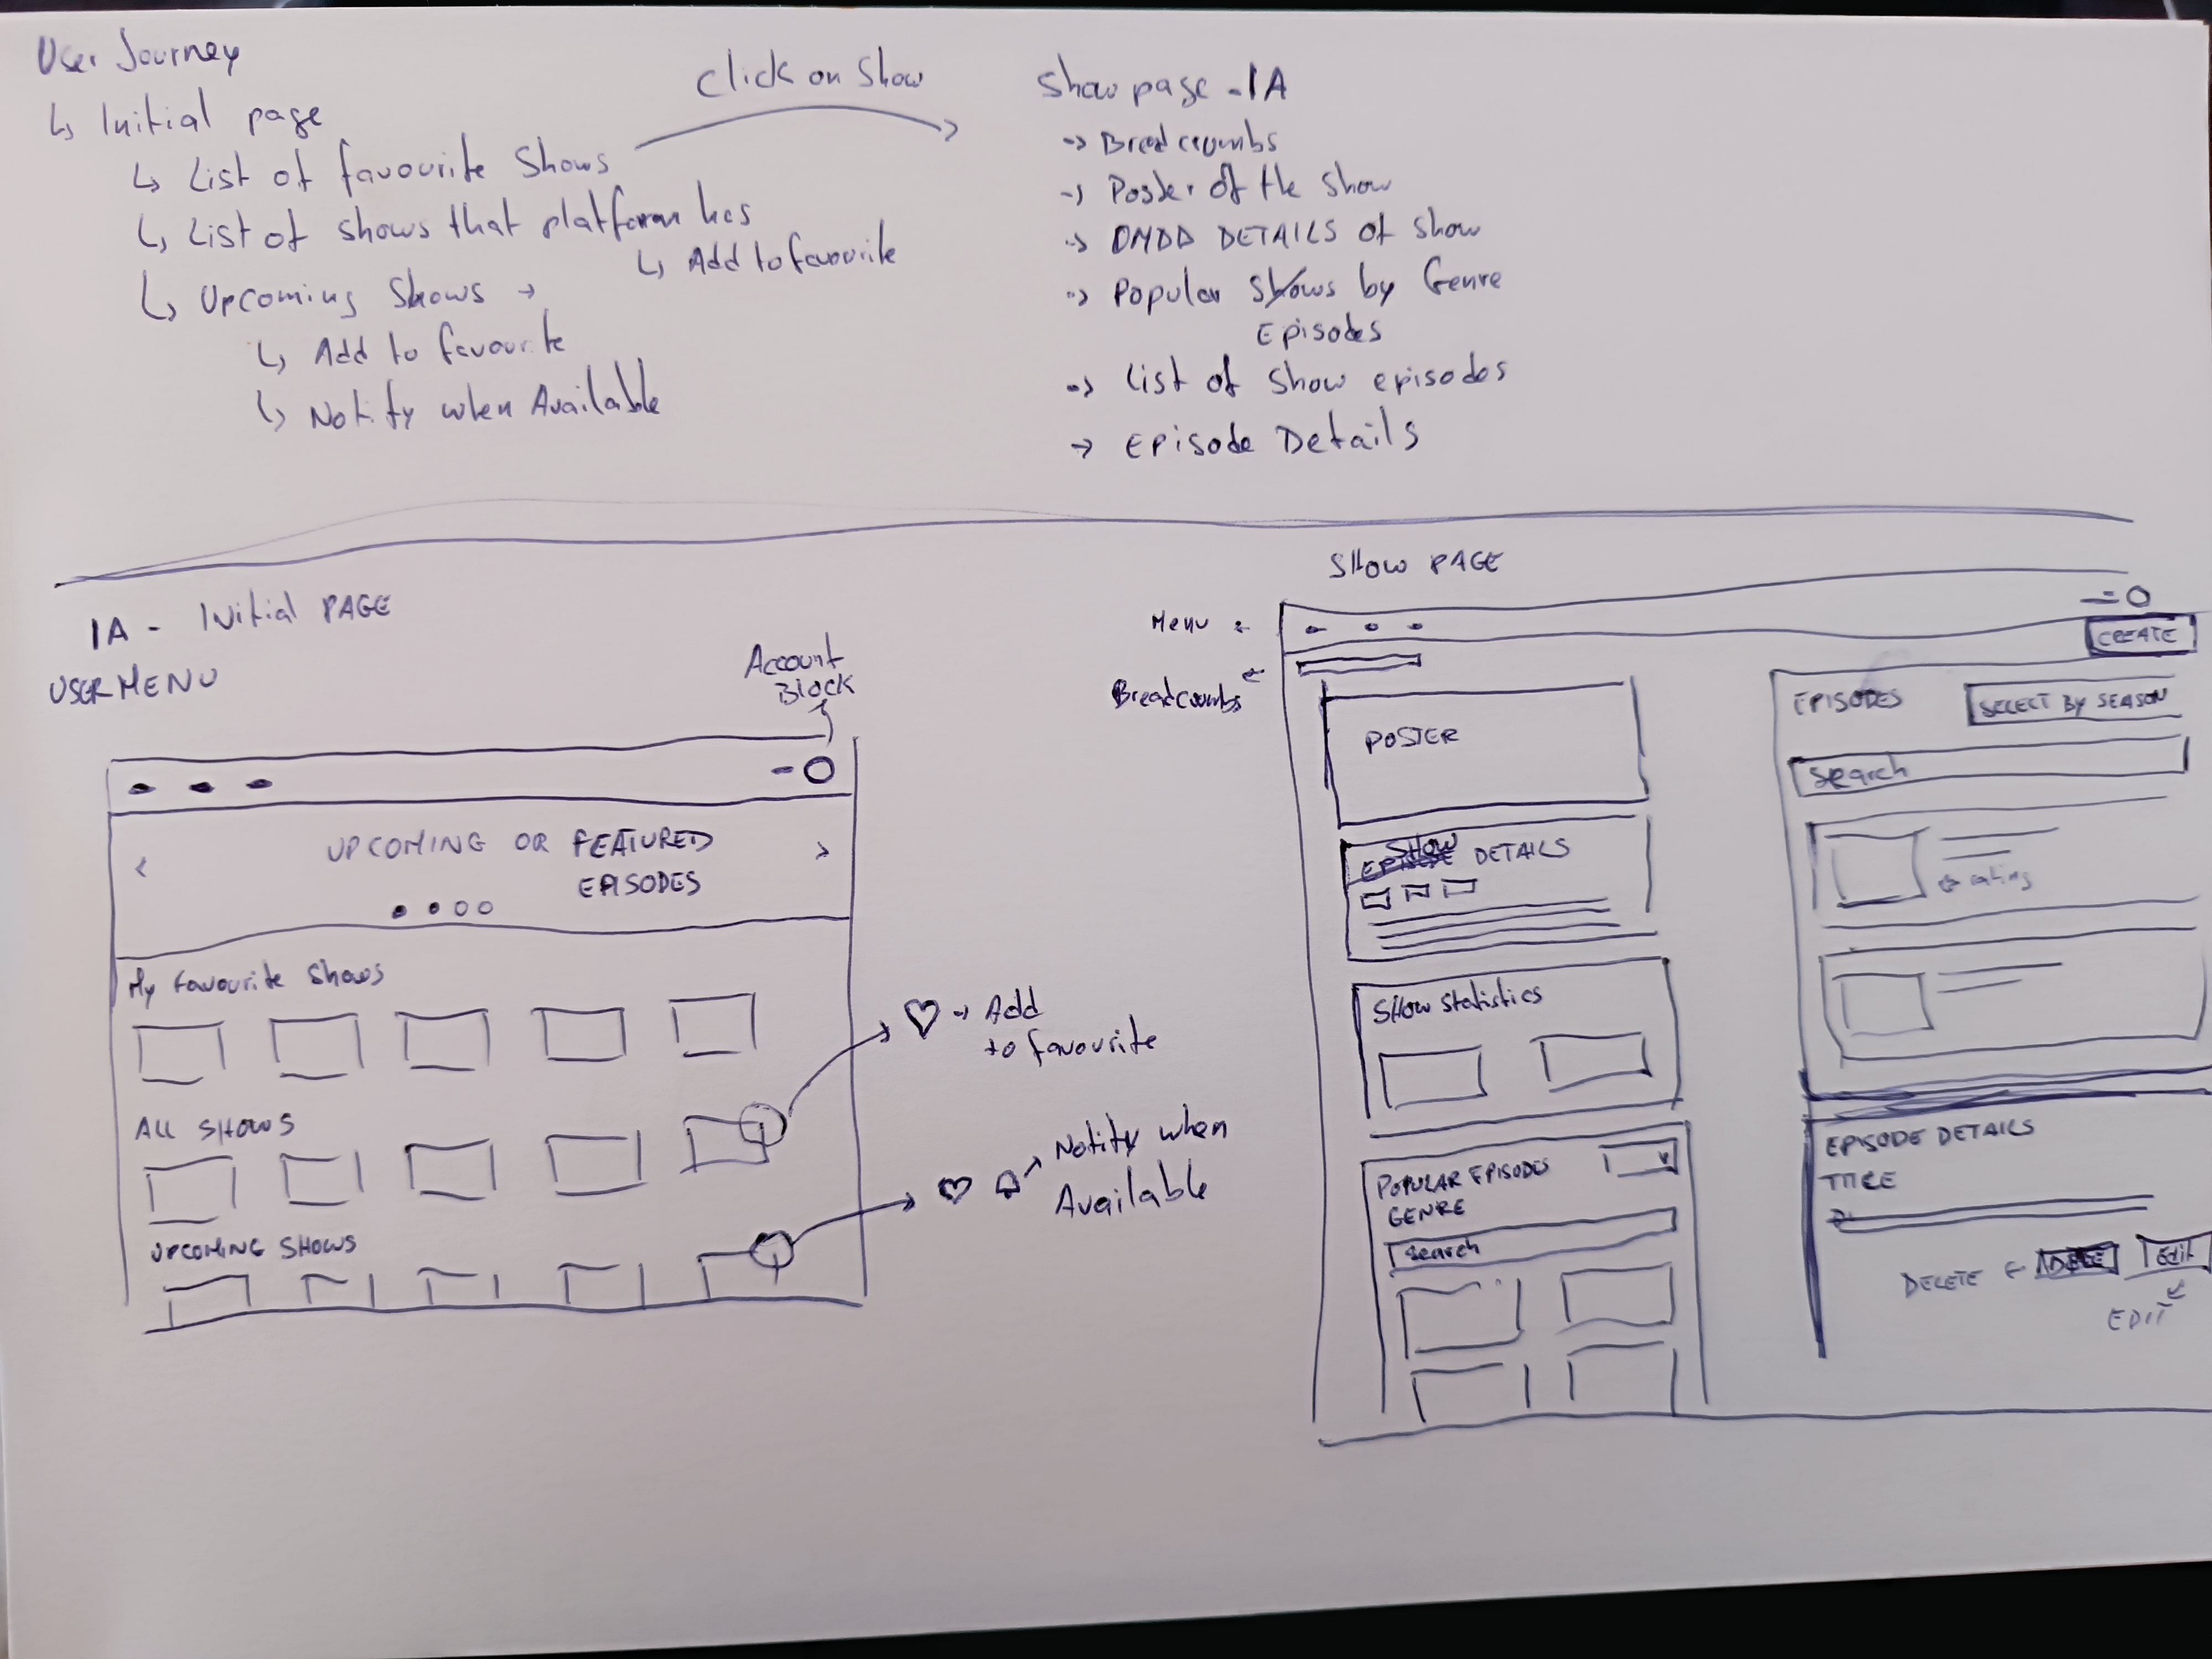 User Journey
↳ Initial page
↳ List of favourite Shows
↳ List of shows that platform has
↳ Add to favourite
↳ Upcoming Shows →
↳ Add to favourite
↳ Notify when Available
Click on Show
Show page - IA
→ Breadcrumbs
→ Poster of the show
→ DETAILS of show
→ Popular Shows by Genre
Episodes
→ List of Show episodes
→ Episode Details
IA - Initial PAGE
USER MENU
Account
Block
< UPCOMING OR FEATURED >
EPISODES
My Favourite Shows
ALL SHOWS
UPCOMING SHOWS
♡ → Add
to favourite
Notify when
Available
SHOW PAGE
Menu ←
Breadcumbs
CREATE
POSTER
SHOW
EPISODE DETAILS
SHOW Statistics
POPULAR EPISODES
GENRE
Search
EPISODES
SELECT BY SEASON
Search
← rating
EPISODE DETAILS
TITLE
DELETE ←
Edit
EDIT